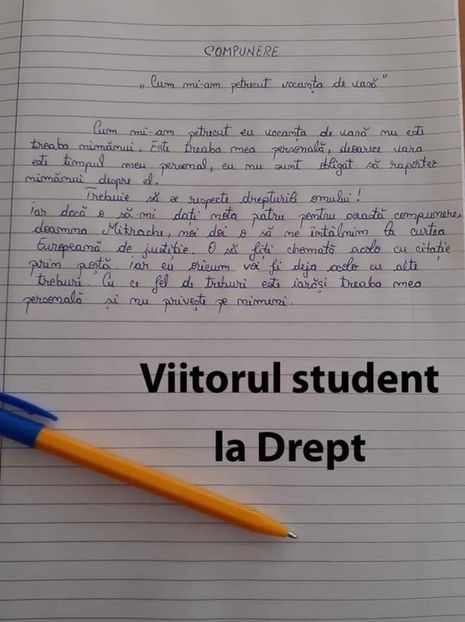 COMPUNERE
„Cum mi-am petrecut vacanța de vară"
Cum mi-am petrecut eu vacanța de vară nu este
treaba nimănui. Este treaba mea personală, deoarece vara
este timpul meu personal, eu nu sunt obligat să raportez
nimănui despre el.
Trebuie să se respecte drepturile omului!
Iar dacă o să-mi dați nota patru pentru această compunere,
doamna Mitrache, noi doi o să ne întâlnim la curtea
Europeană de justiție. O să fiți chemată acolo cu citație
prin poștă. Iar eu oricum voi fi deja acolo cu alte
treburi. Cu ce fel de treburi este iarăși treaba mea
personală și nu privește pe nimeni.
Viitorul student
la Drept